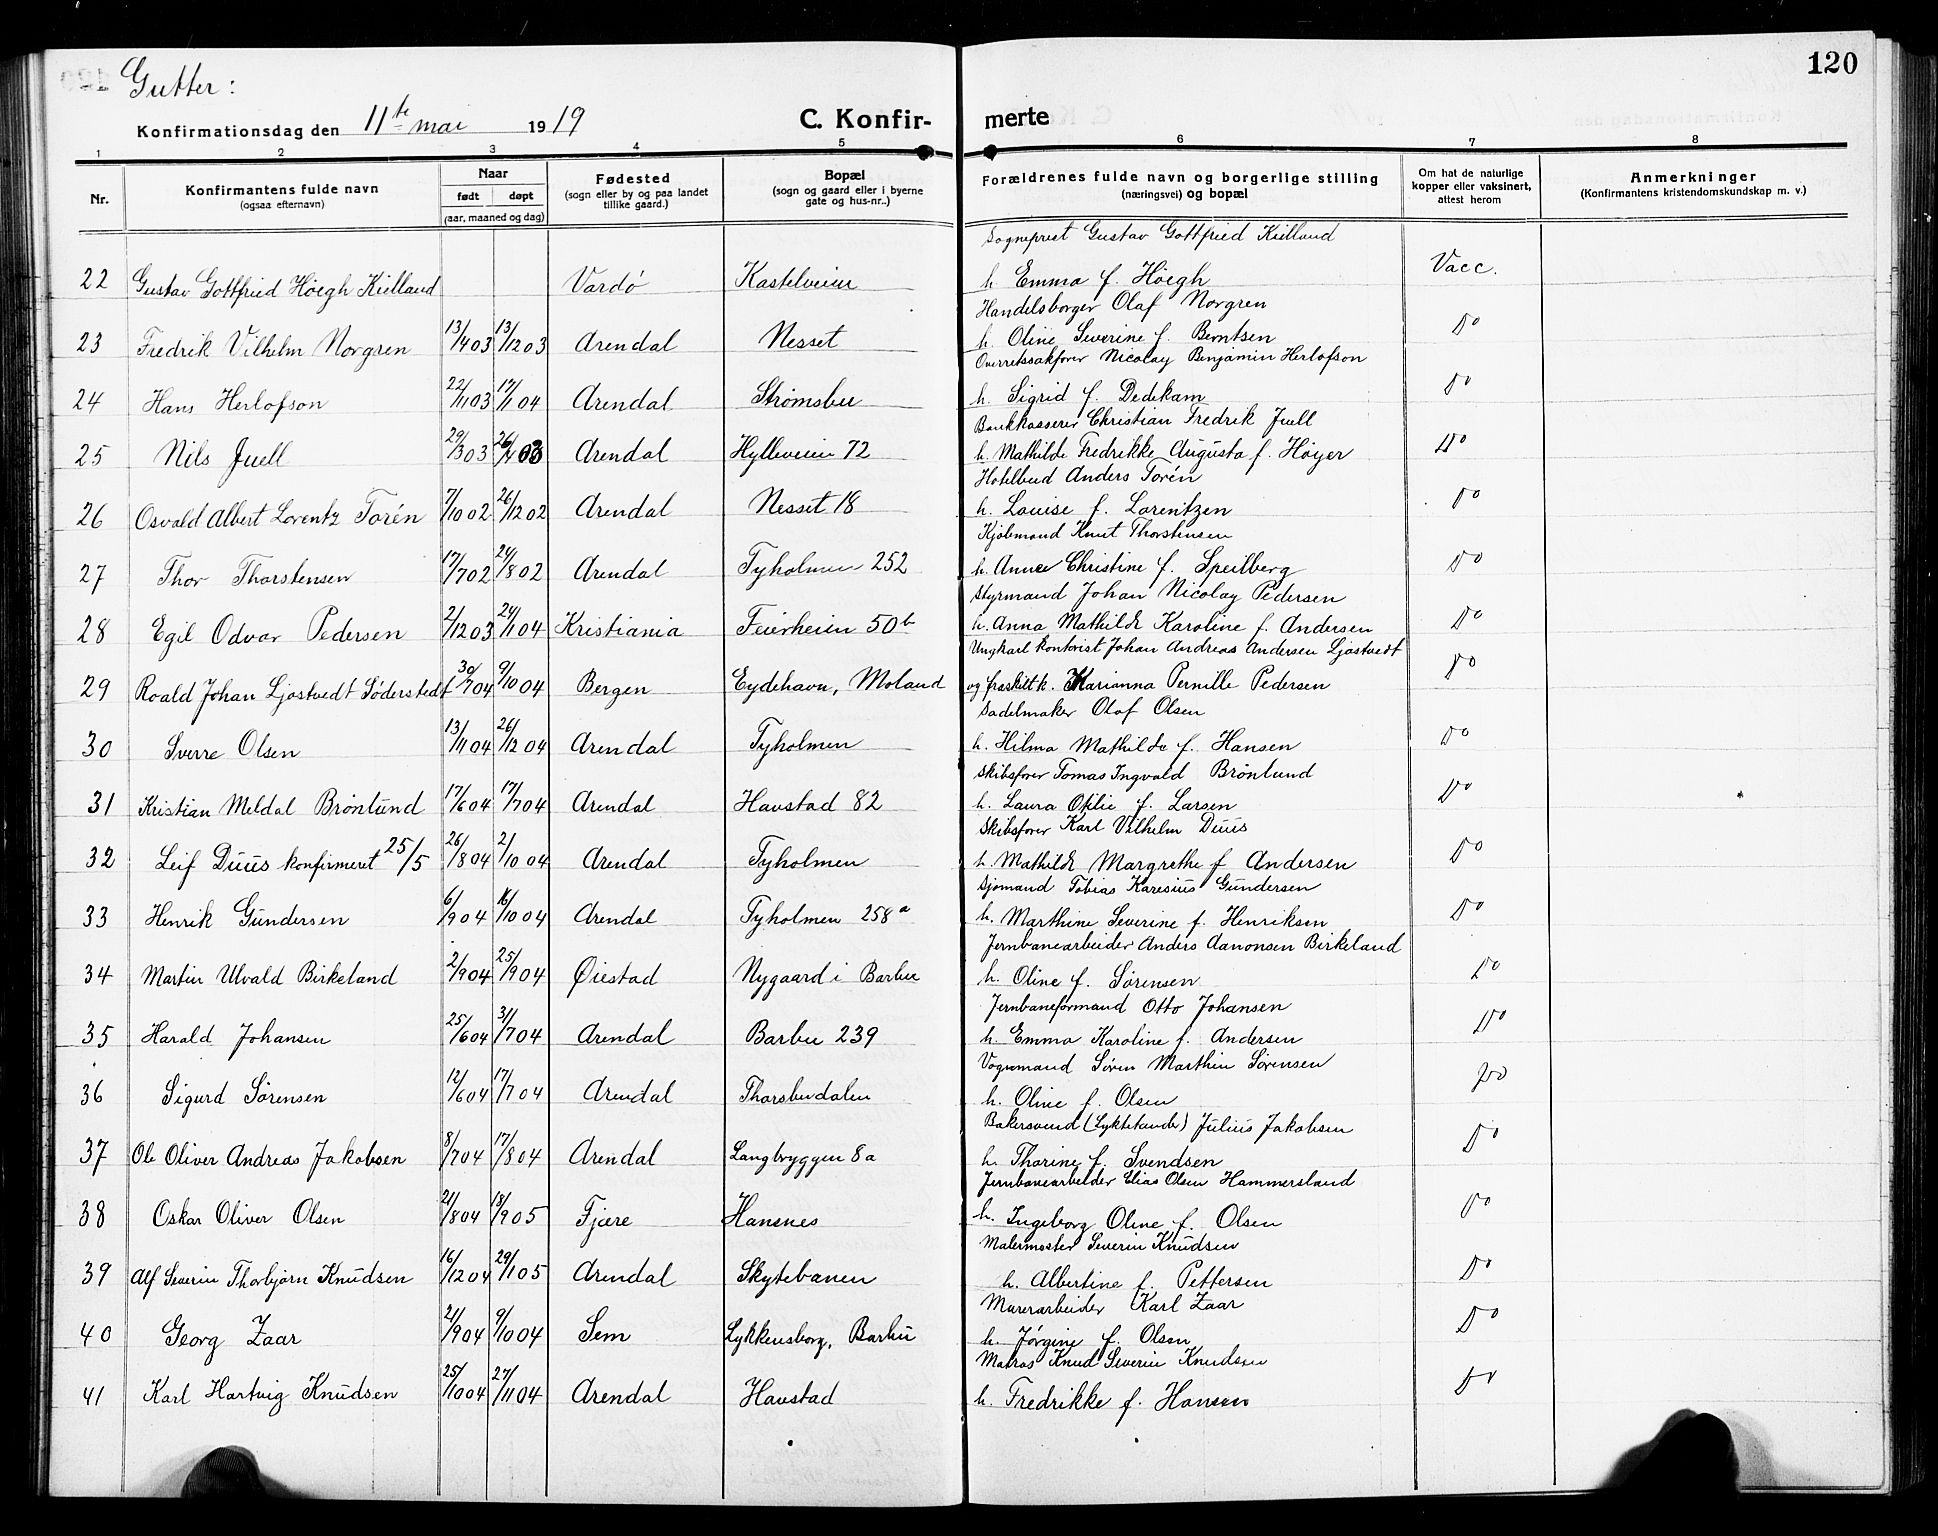 120
Gutter:
Konfirmationsdag den 11te mai 1919 C. Konfirmerte
1 2 3 4 5 6 7 8
Nr. Konfirmantens fulde navn (ogsaa efternavn) Naar født døpt (aar, maaned og dag) Fødested (sogn eller by og paa landet tillike gaard.) Bopæl (sogn og gaard eller i byerne gate og hus-nr..) Forældrenes fulde navn og borgerlige stilling (næringsvei) og bopæl Om hat de naturlige kopper eller vaksinert, attest herom Anmerkninger (Konfirmantens kristendomskundskap m. v.)
Sogneprest Gustav Gottfried Kielland
22 Gustav Gottfried Höegh Kielland Vardö Kastelveien h. Emma f. Höegh Vacc.
Handelsborger Olaf Norgren
23 Fredrik Vilhelm Norgren 13/4 03 13/12 03 Arendal Nesset h. Oline Severine f. Berntsen Do
Overretssakfører Nicolay Benjamin Herlofson
24 Hans Herlofson 22/11 03 17/1 04 Arendal Strømsbu h. Sigrid f. Dedekam Do
Bankkasserer Christian Fredrik Juell
25 Nils Juell 29/3 03 26/4 03 Arendal Hylleveien 72 h. Mathilde Fredrikke Augusta f. Höyer Do
Hotelbud Anders Torén
26 Osvald Albert Lorentz Torén 7/10 02 26/12 02 Arendal Nesset 18 h. Louise f. Lorentzen Do
Kjöbmand Knut Thorstensen
27 Thor Thorstensen 17/7 02 24/8 02 Arendal Tyholmen 252 h. Anne Christine f. Speilberg Do
Styrmand Johan Nicolay Pedersen
28 Egil Odvar Pedersen 2/12 03 24/1 04 Kristiania Feierheien 50b h. Anna Mathilde Karoline f. Andersen Do
Ungkarl kontorist Johan Andreas Andersen Ljostvedt
29 Roald Johan Ljostvedt Söderstedt 30/7 04 9/10 04 Bergen Eydehavn, Moland og fraskilt k. Marianna Pernille Pedersen Do
Sadelmaker Olaf Olsen
30 Sverre Olsen 13/11 04 26/12 04 Arendal Tyholmen h. Hilma Mathilde f. Hansen Do
Skibsfører Tomas Ingvald Brönlund
31 Kristian Meldal Brönlund 17/6 04 17/7 04 Arendal Havstad 82 h. Laura Otilie f. Larsen Do
Skibsfører Karl Vilhelm Duus
32 Leif Duus konfirmeret 25/5 26/8 04 2/10 04 Arendal Tyholmen h. Mathilde Margrethe f. Andersen Do
Sjömand Tobias Karesius Gundersen
33 Henrik Gundersen 6/9 04 16/10 04 Arendal Tyholmen 258a h. Marthine Severine f. Henriksen Do
Jernbanearbeider Anders Aanonsen Birkeland
34 Martin Ulvald Birkeland 2/9 04 25/9 04 Øiestad Nygaard i Barbu h. Oline f. Sörensen Do
Jernbaneformand Otto Johansen
35 Harald Johansen 25/6 04 31/7 04 Arendal Barbu 239 h. Emma Karoline f. Andersen Do
Vognmand Sören Marthin Sörensen
36 Sigurd Sörensen 12/6 04 17/7 04 Arendal Thorsbudalen h. Oline f. Olsen Do
Bakersvend (Lyktetænder) Julius Jakobsen
37 Ole Oliver Andreas Jakobsen 8/7 04 17/8 04 Arendal Langbryggen 8a h. Thorine f. Svendsen Do
Jernbanearbeider Elias Olsen Hammersland
38 Oskar Oliver Olsen 21/8 04 18/9 05 Fjære Hansnes h. Ingeborg Oline f. Olsen Do
Malermester Severin Knudsen
39 Alf Severin Thorbjörn Knudsen 16/12 04 29/1 05 Arendal Skytebanen h. Albertine f. Pettersen Do
Murerarbeider Karl Zaar
40 Georg Zaar 21/9 04 9/10 04 Sem Lykkensborg, Barbu h. Jörgine f. Olsen Do
Matros Knud Severin Knudsen
41 Karl Hartvig Knudsen 25/10 04 27/11 04 Arendal Havstad h. Fredrikke f. Hansen Do